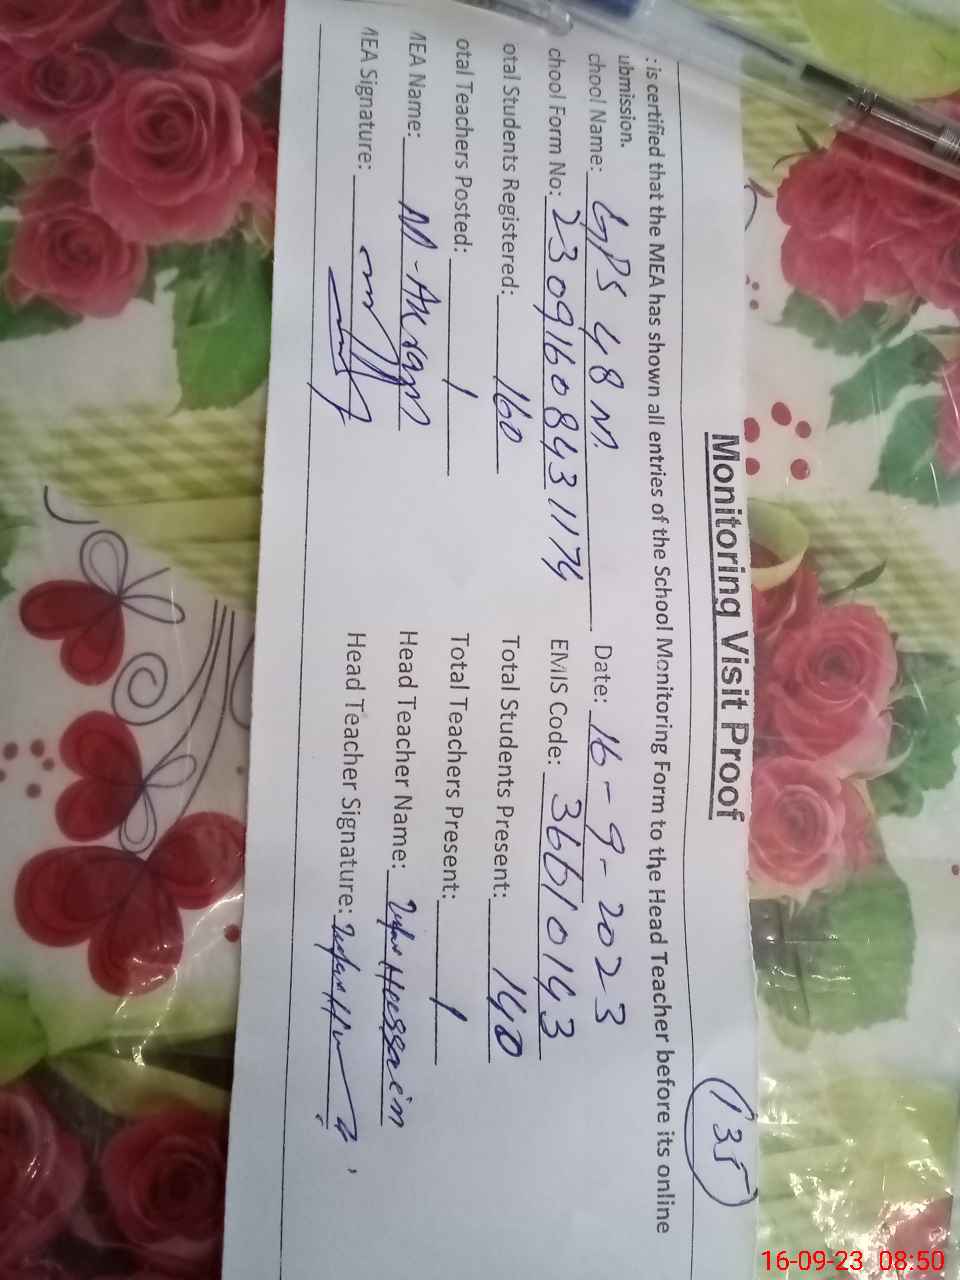 Monitoring Visit Proof
135
: is certified that the MEA has shown all entries of the School Monitoring Form to the Head Teacher before its online
ubmission.
chool Name: GPS 48 M. Date: 16-9-2023
chool Form No: 23091608431174 EMIS Code: 36610143
otal Students Registered: 160 Total Students Present: 140
otal Teachers Posted: 1 Total Teachers Present: 1
MEA Name: M-Akram Head Teacher Name: Hussain
MEA Signature: Head Teacher Signature:
16-09-23 08:50